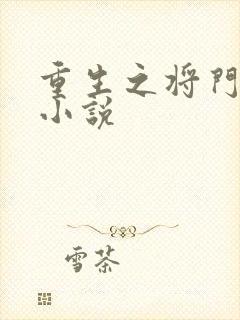 重生之将門
小説
雪茶